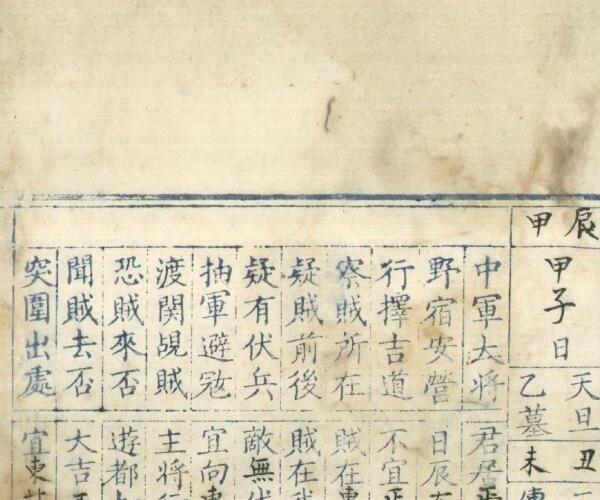 辰甲
甲子日
天旦丑
乙墓未
中軍大將
君居
野宿安營
日辰
行擇吉道
不宜
察賊所在
賊在東
疑賊前後
賊在
疑有伏兵
敵無伏
抽軍避寇
宜向東
渡関覘賊
主將行
恐賊來否
遊都
聞賊去否
大吉
突圍出處
宜東